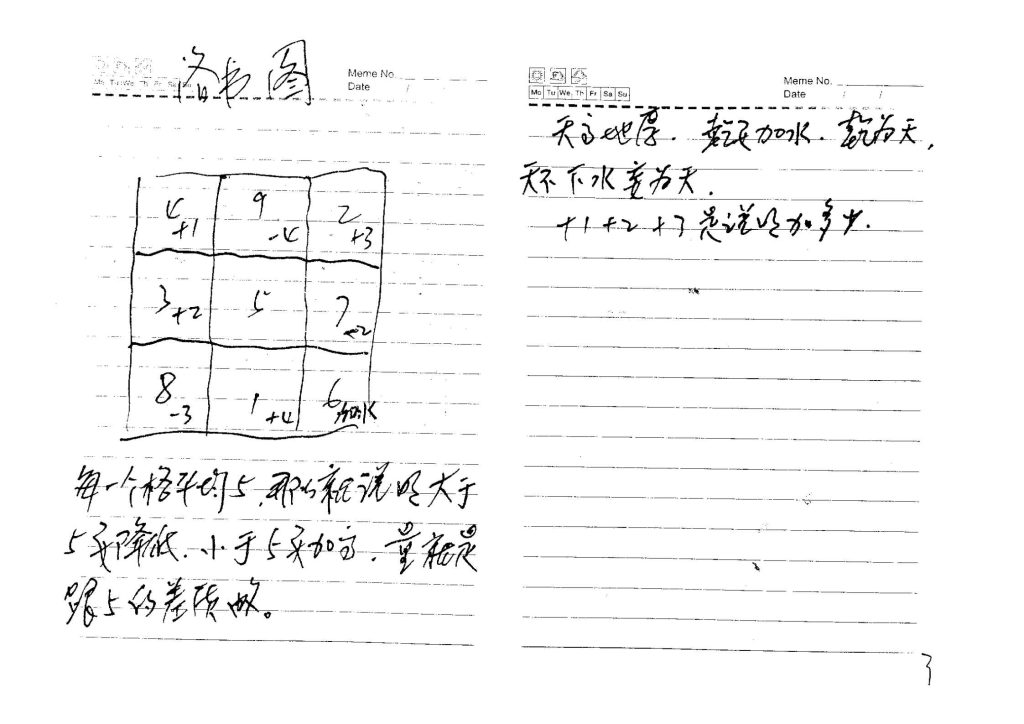 洛书图
Mo Tu We Th Fr Sa Su
Meme No.
Date / /
4 +1
9 -4
2 +3
3 +2
5
7 -2
8 -3
1 +4
6 加水
每一个格平均5,那么就说明大于
5要降低.小于5要加高.量就是
跟5的差
Mo Tu We Th Fr Sa Su
Meme No.
Date / /
天高地厚.乾要加水.乾为天,
天不下水变为天.
+1 +2 +3 是说明加多少.
3